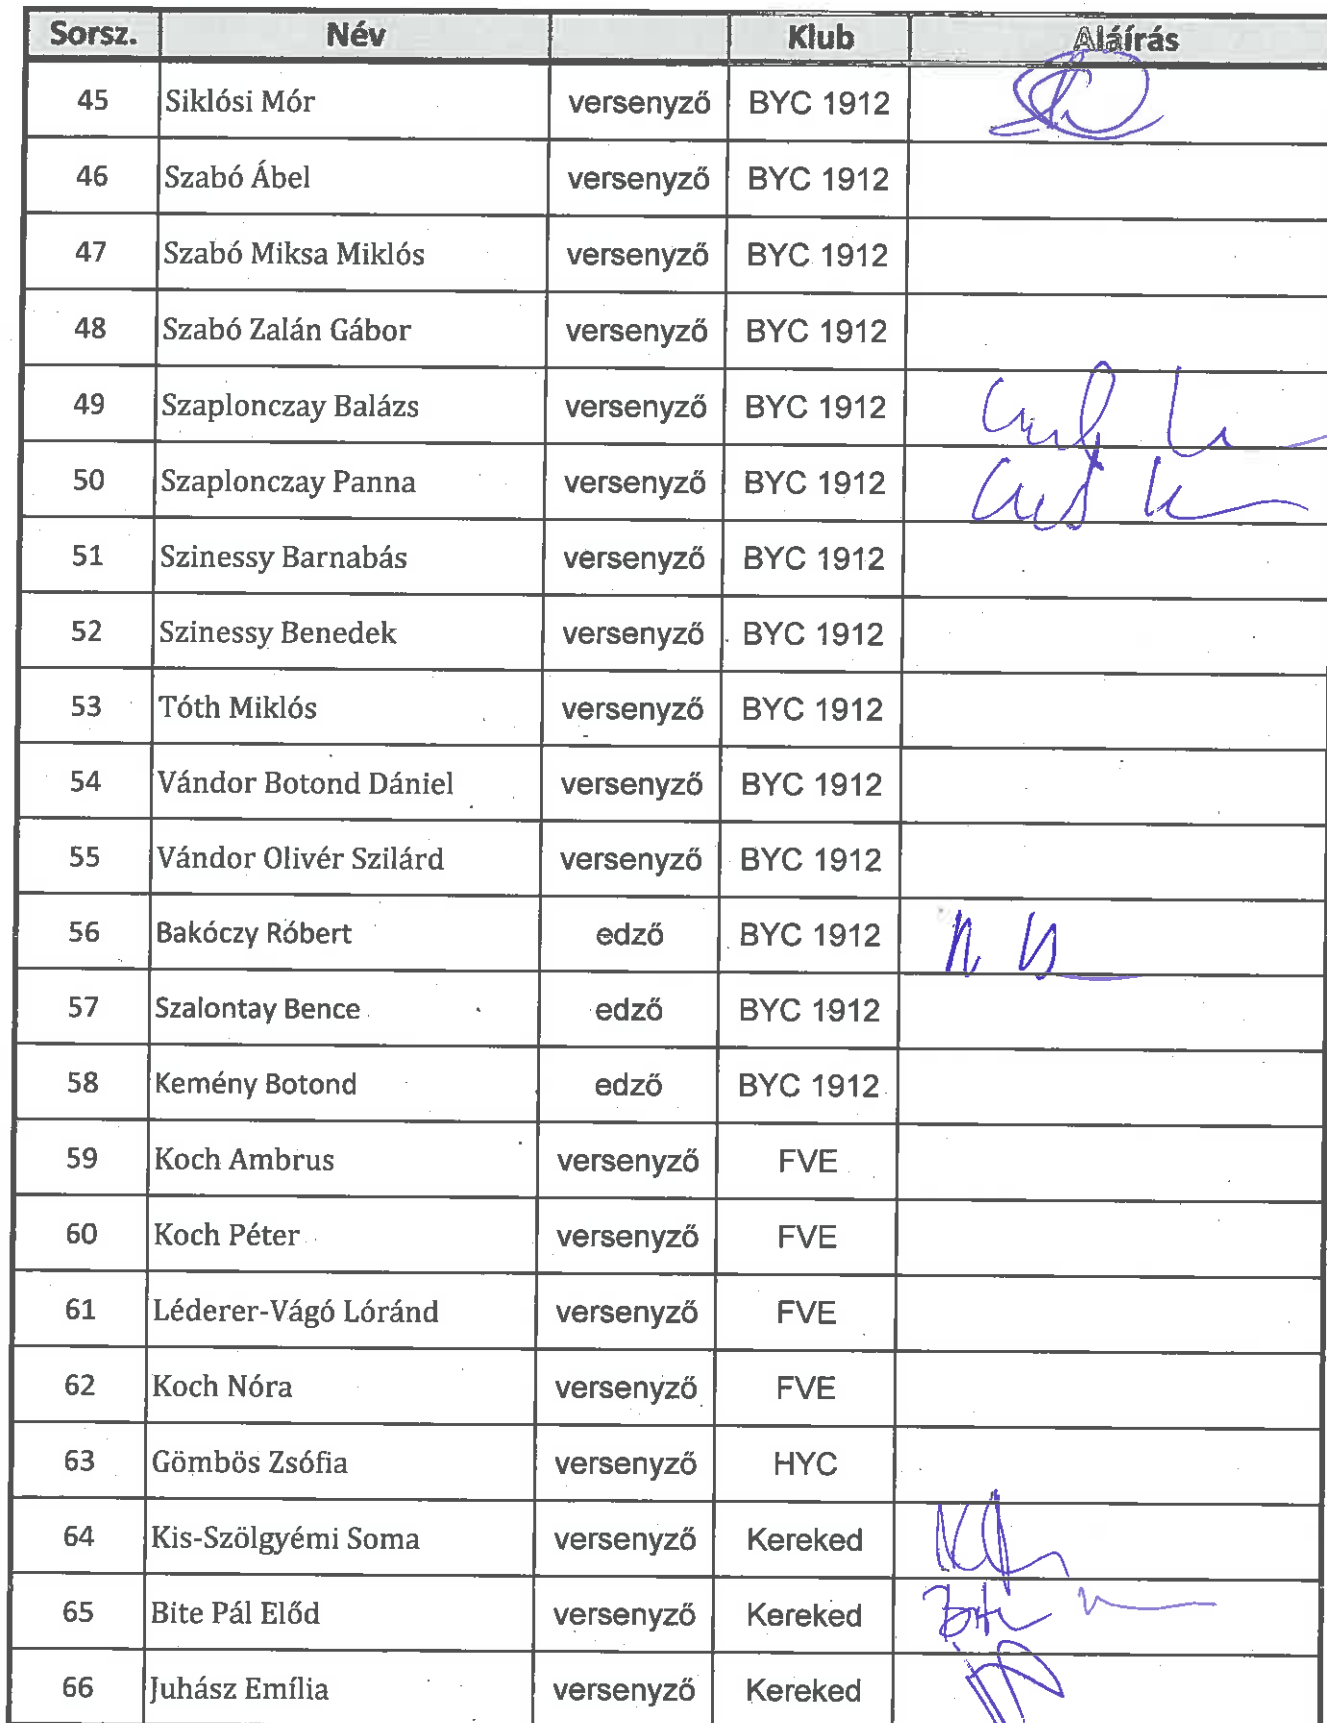 Sorsz. Név Klub Aláírás
45 Siklósi Mór versenyző BYC 1912
46 Szabó Ábel versenyző BYC 1912
47 Szabó Miksa Miklós versenyző BYC 1912
48 Szabó Zalán Gábor versenyző BYC 1912
49 Szaplonczay Balázs versenyző BYC 1912
50 Szaplonczay Panna versenyző BYC 1912
51 Szinessy Barnabás versenyző BYC 1912
52 Szinessy Benedek versenyző BYC 1912
53 Tóth Miklós versenyző BYC 1912
54 Vándor Botond Dániel versenyző BYC 1912
55 Vándor Olivér Szilárd versenyző BYC 1912
56 Bakóczy Róbert edző BYC 1912
57 Szalontay Bence edző BYC 1912
58 Kemény Botond edző BYC 1912
59 Koch Ambrus versenyző FVE
60 Koch Péter versenyző FVE
61 Léderer-Vágó Lóránd versenyző FVE
62 Koch Nóra versenyző FVE
63 Gömbös Zsófia versenyző HYC
64 Kis-Szölgyémi Soma versenyző Kereked
65 Bite Pál Előd versenyző Kereked
66 Juhász Emília versenyző Kereked